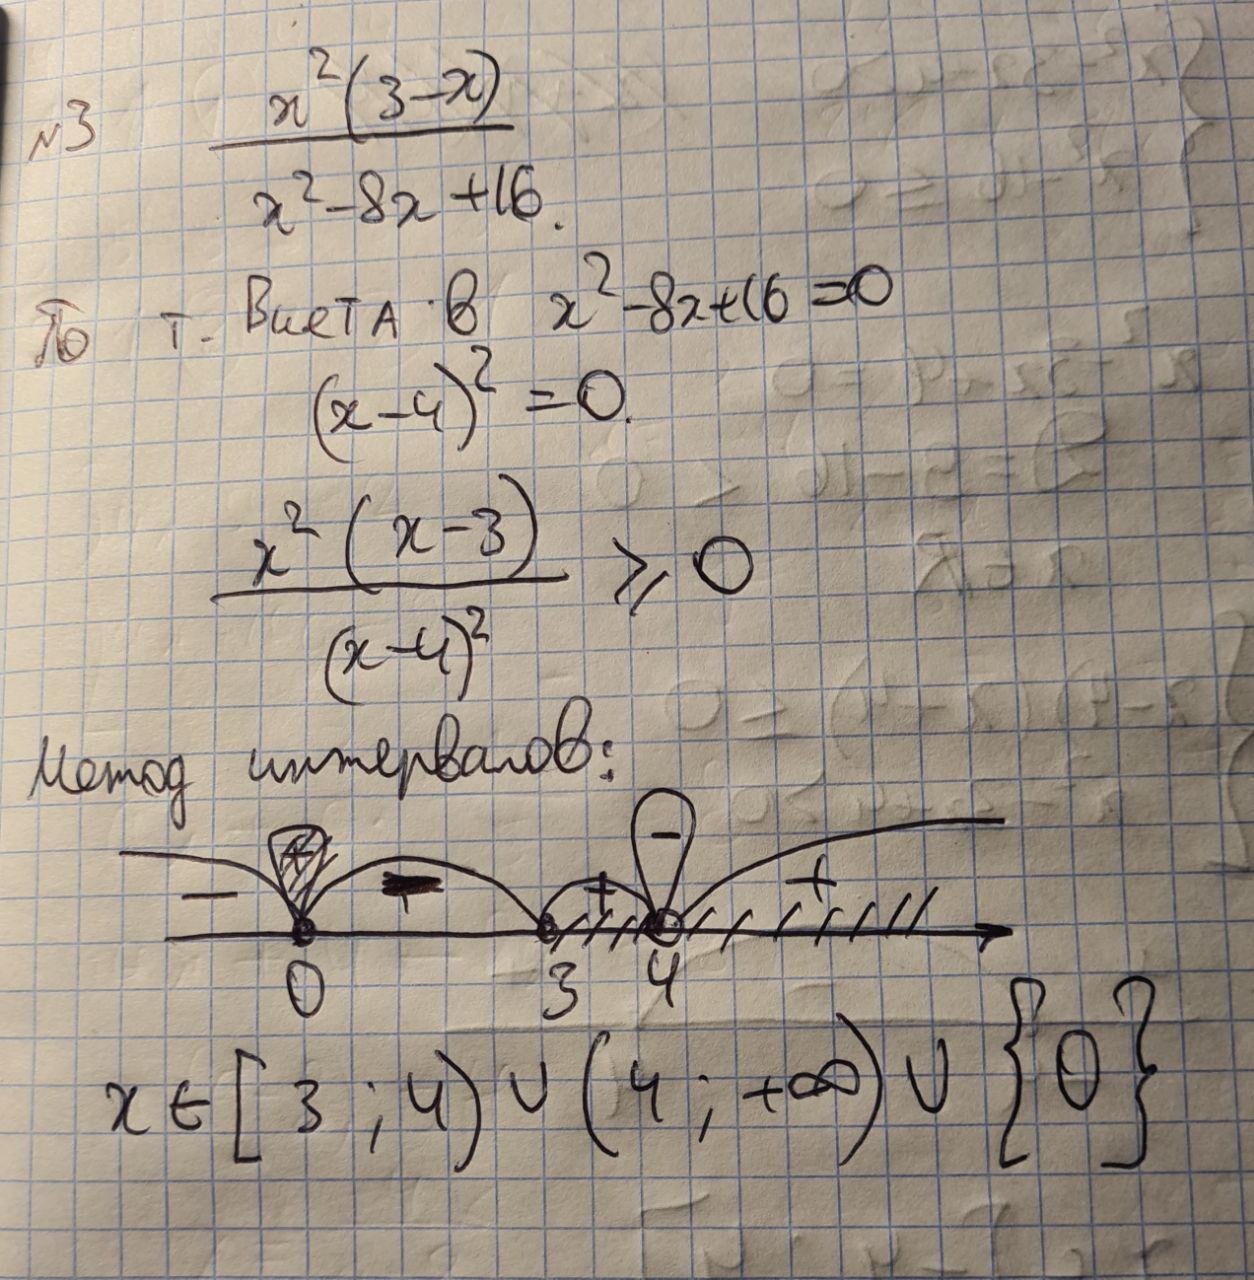 №3 x²(3-x)
x²-8x+16.
По т. Виета в x²-8x+16=0
(x-4)²=0.
x²(x-3) ⩾ 0
(x-4)²
Метод интервалов:
- + - + - +
0 3 4
x∈[3;4)∪(4;+∞)∪{0}